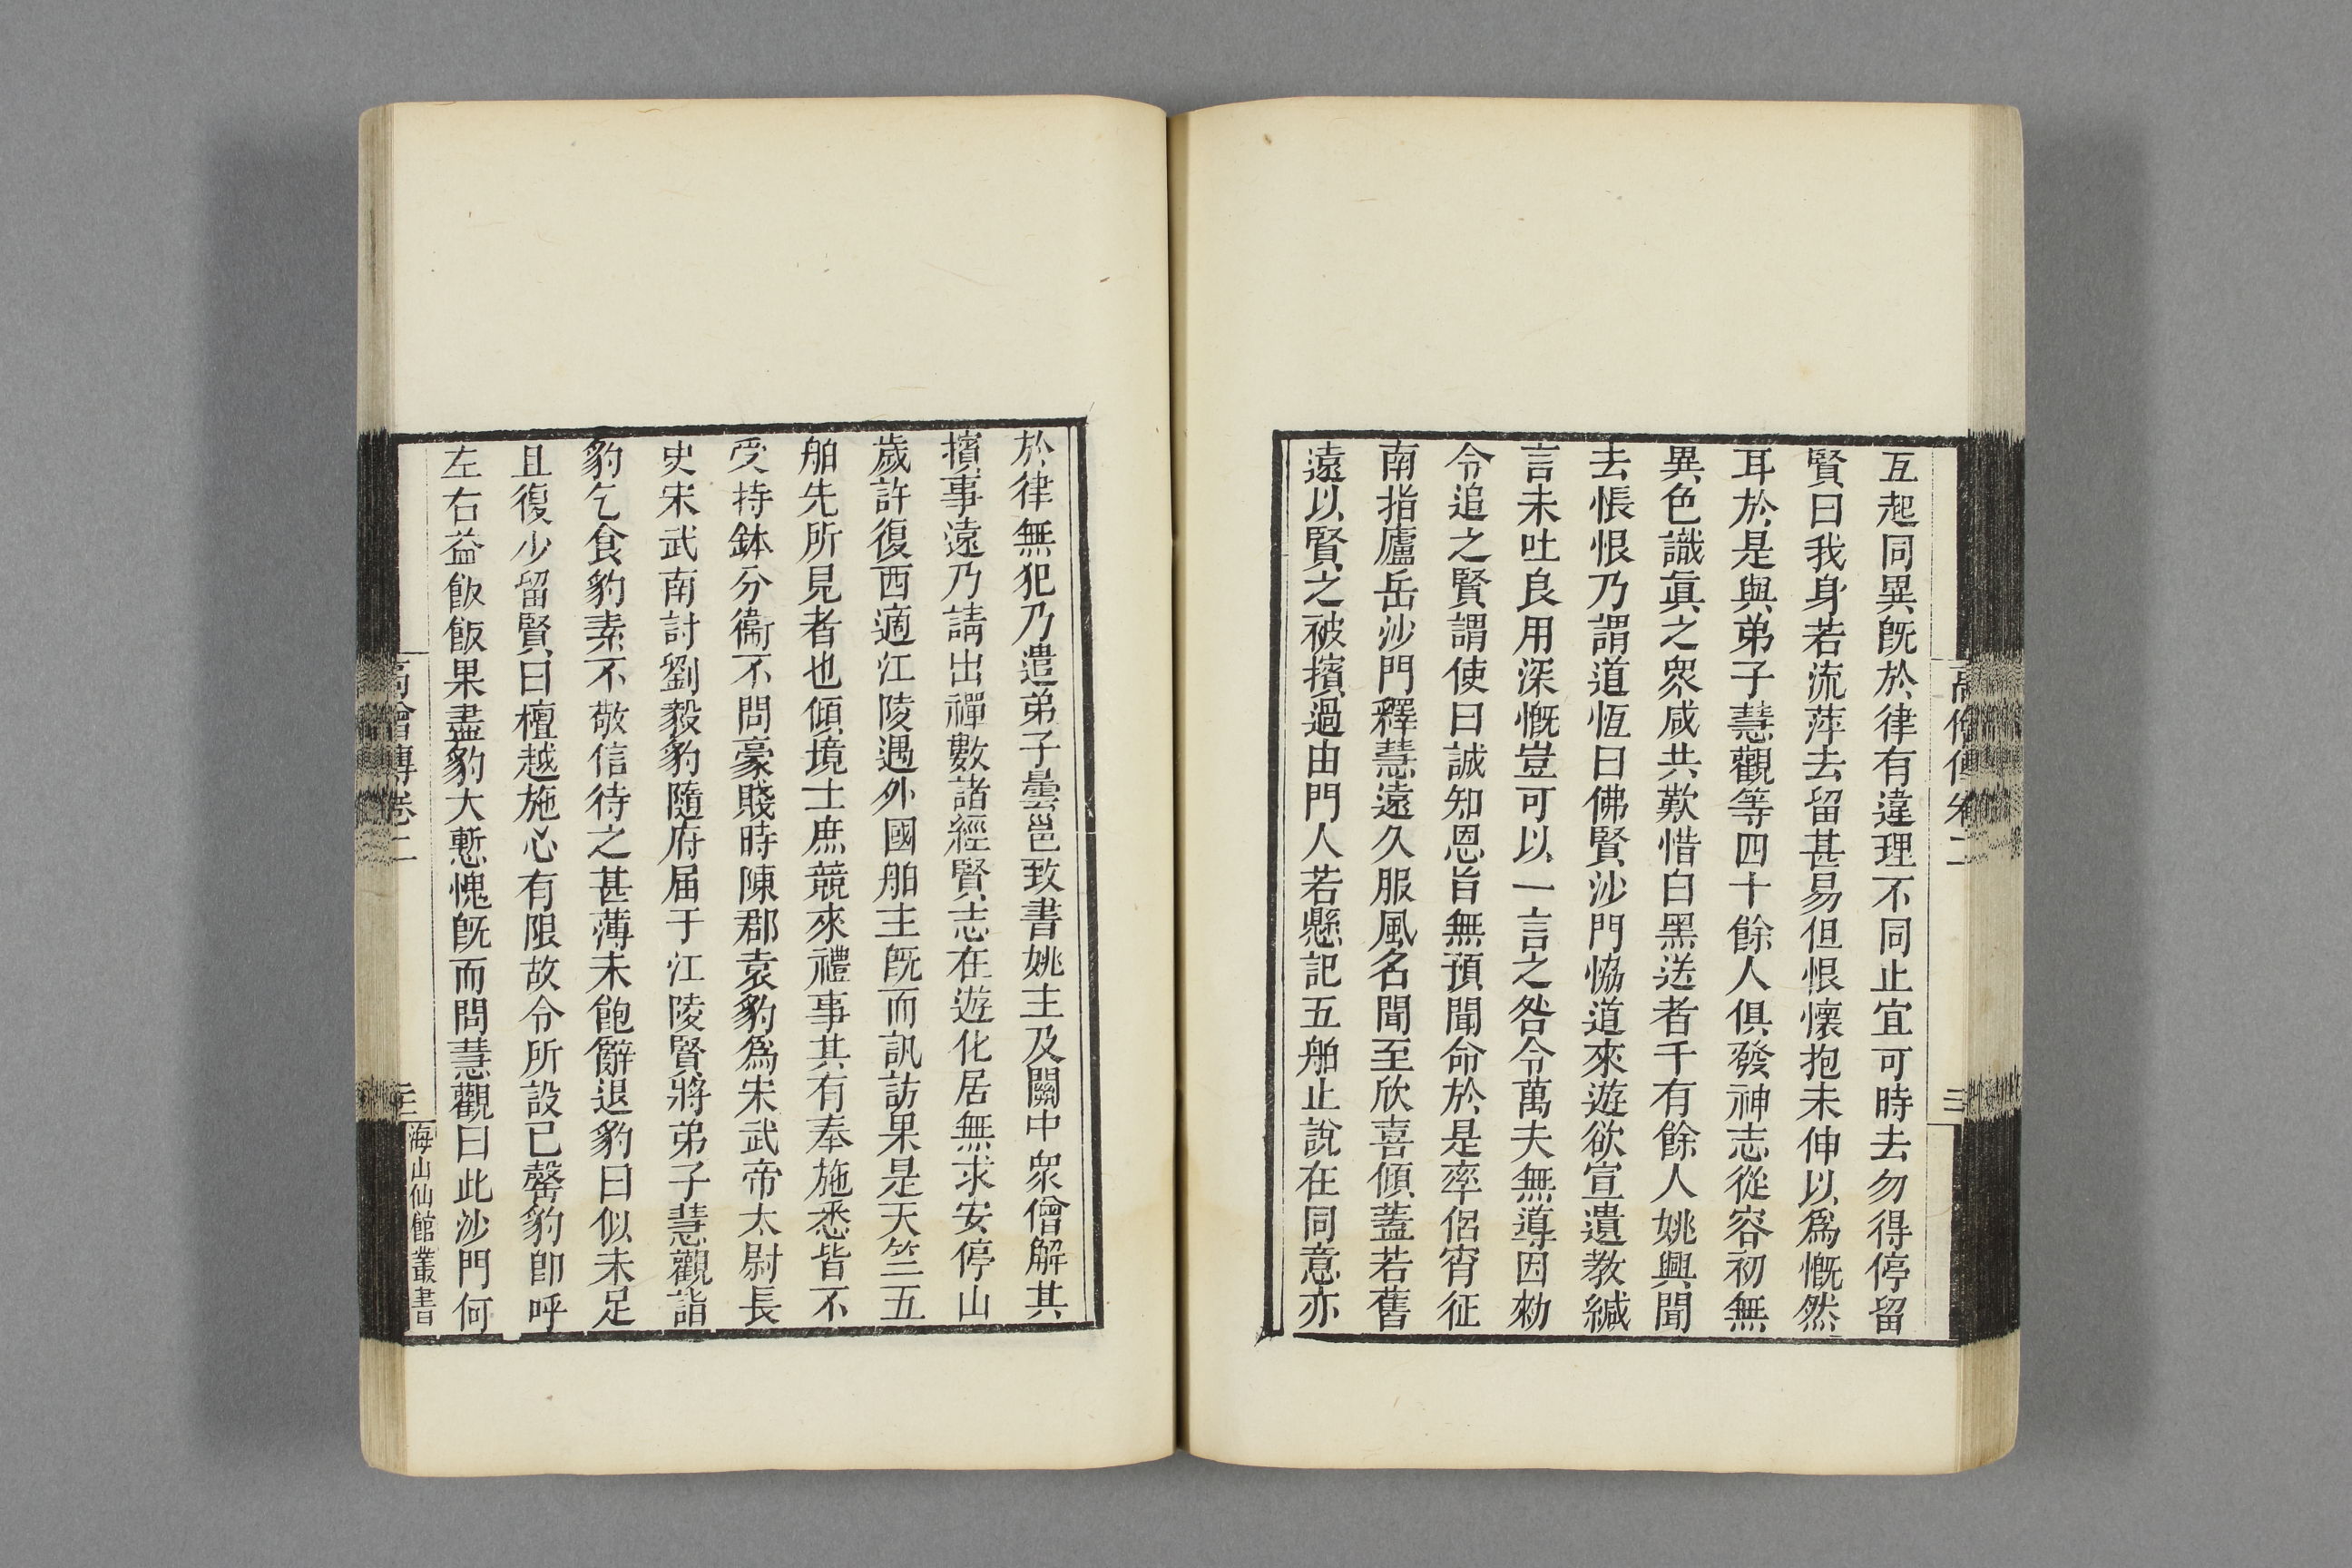 高僧傳卷二
三
互起同異旣於律有違理不同止宜可時去勿得停留
賢曰我身若流萍去留甚易但恨懷抱未伸以爲慨然
耳於是與弟子慧觀等四十餘人俱發神志從容初無
異色識眞之衆咸共歎惜白黑送者千有餘人姚興聞
去悵恨乃謂道恆曰佛賢沙門恊道來遊欲宣遺教緘
言未吐良用深慨豈可以一言之咎令萬夫無導因勑
令追之賢謂使曰誠知恩旨無預聞命於是率侶宵征
南指廬岳沙門釋慧遠久服風名聞至欣喜傾蓋若舊
遠以賢之被擯過由門人若懸記五舶止說在同意亦
於律無犯乃遣弟子曇邕致書姚主及關中衆僧解其
擯事遠乃請出禪數諸經賢志在遊化居無求安停山
歲許復西適江陵遇外國舶主旣而訊訪果是天竺五
舶先所見者也傾境士庶競來禮事其有奉施悉皆不
受持鉢分衞不問豪賤時陳郡袁豹爲宋武帝太尉長
史宋武南討劉毅豹隨府届于江陵賢將弟子慧觀詣
豹乞食豹素不敬信待之甚薄未飽辭退豹曰似未足
且復少留賢曰檀越施心有限故令所設已罄豹卽呼
左右益飯飯果盡豹大慙愧旣而問慧觀曰此沙門何
高僧傳卷二
三
海山仙館叢書